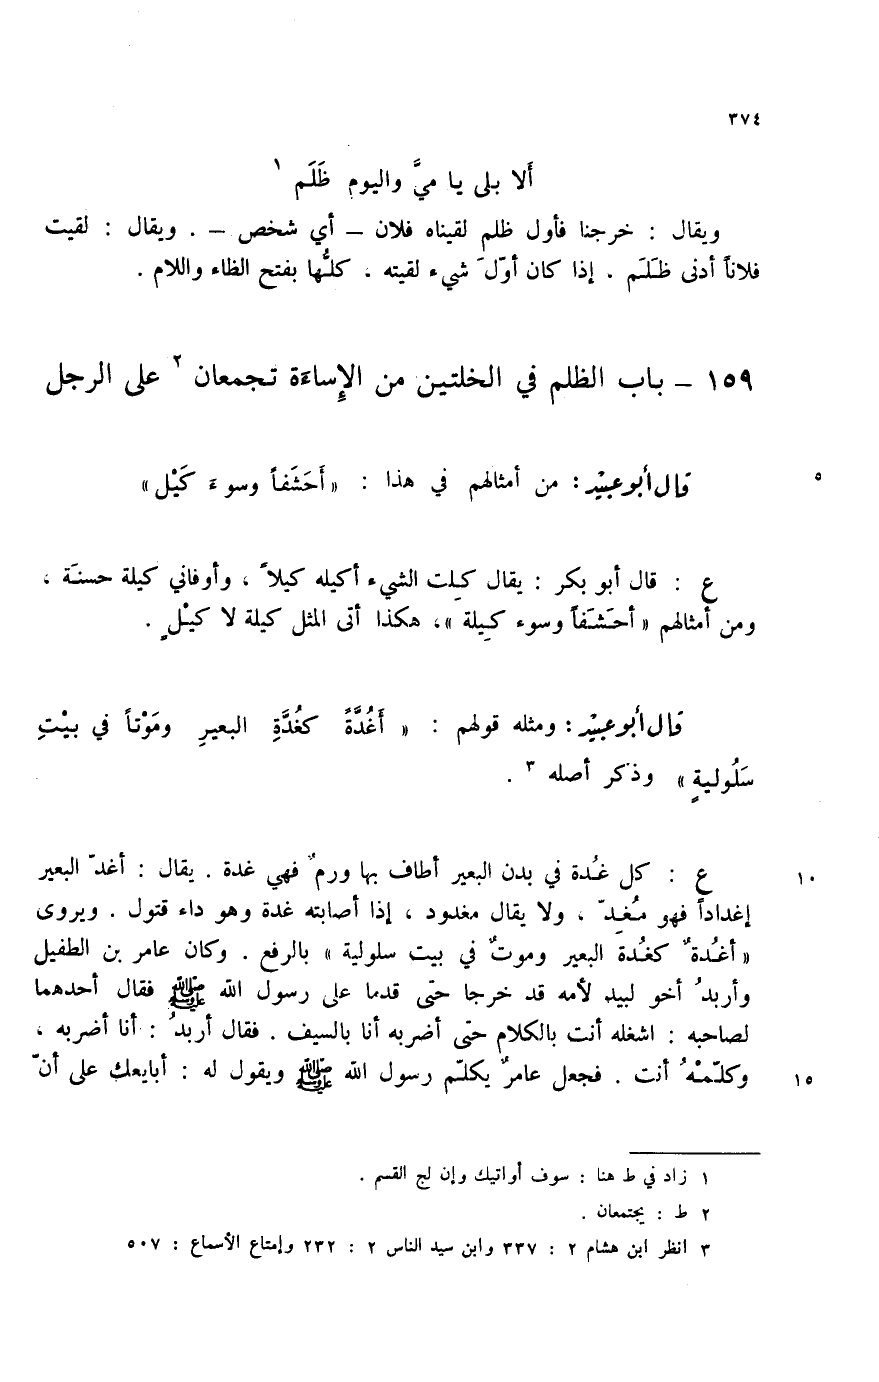 ٣٧٤
أَلا بلى يا ميَّ واليوم ظَلَم ١
ويقال : خرجنا فأول ظلم لقيناه فلان – أي شخص – . ويقال : لقيت
فلاناً أدنى ظَلَم . إذا كان أوّلَ شيء لقيته ، كلُّها بفتح الظاء واللام .
١٥٩ – باب الظلم في الخلتين من الإساءَة تجمعان ٢ على الرجل
٥ قال أبو عبيد : من أمثالهم في هذا : « أَحَشَفاً وسوءَ كَيْل »
ع : قال أبو بكر : يقال كِلت الشيء أكيله كيلاً ، وأوفاني كيلة حسنَة ،
ومن أمثالهم « أحَشَفاً وسوء كِيلة »، هكذا أتى المثل كيلة لا كيْلٍ .
قال أبو عبيد : ومثله قولهم : « أَغُدَّةً كغُدَّةِ البعيرِ ومَوْتاً في بيْتِ
سَلُوليةٍ » وذكر أصله ٣ .
١٠ ع : كل غُدة في بدن البعير أطاف بها ورمٌ فهي غدة . يقال : أغدّ البعير
إغداداً فهو مُغِدّ ، ولا يقال مغدود ، إذا أصابته غدة وهو داء قتول . ويروى
« أغُدةٌ كغُدة البعير وموتٌ في بيت سلولية » بالرفع . وكان عامر بن الطفيل
وأربدُ أخو لبيد لأمه قد خرجا حتّى قدما على رسول الله ﷺ فقال أحدهما
لصاحبه : اشغله أنت بالكلام حتّى أضربه أنا بالسيف . فقال أربدُ : أنا أضربه ،
١٥ وكلّمْهُ أنت . فجعل عامرٌ يكلّم رسول الله ﷺ ويقول له : أبايعك على أنّ
١ زاد في ط هنا : سوف أواتيك وإن لج القسم .
٢ ط : يجتمعان .
٣ انظر ابن هشام ٢ : ٣٣٧ وابن سيد الناس ٢ : ٢٣٢ وإمتاع الأسماع : ٥٠٧